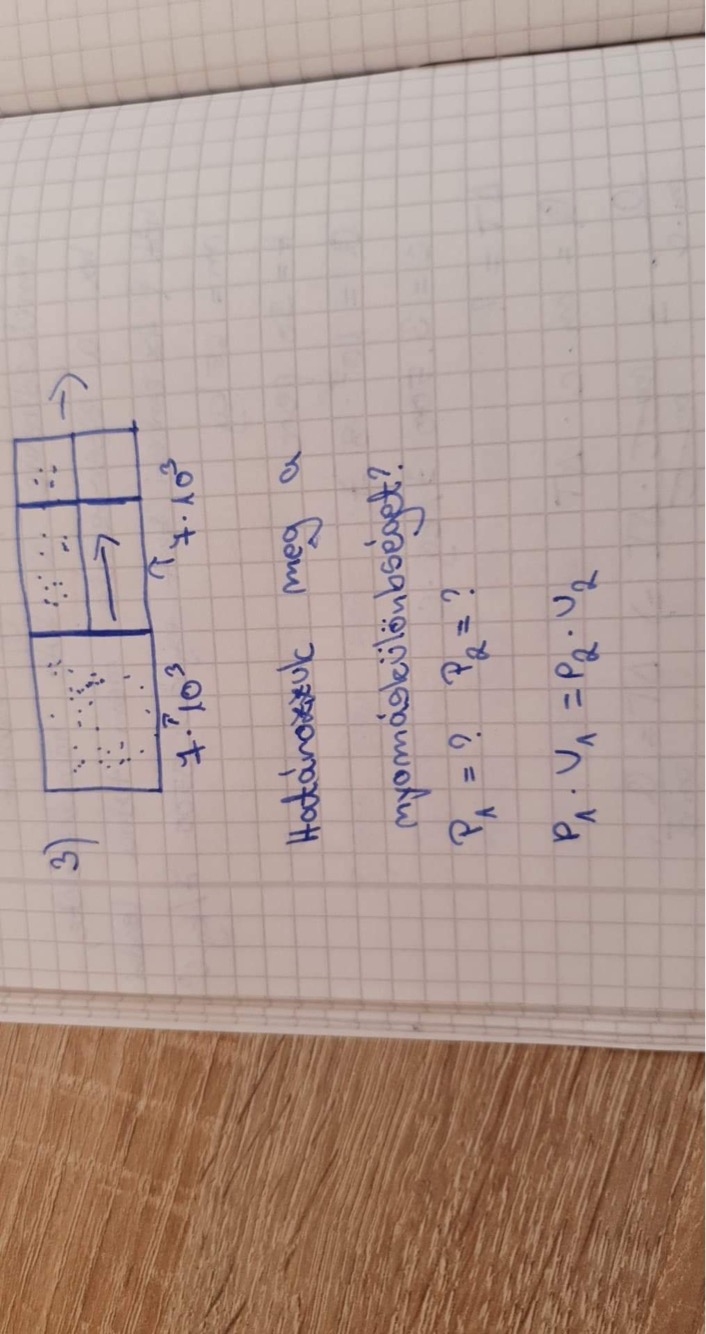 3)
7·10³
7·10³
Határozzuk meg a
nyomáskülönbséget?
P₁ = ? P₂ = ?
P₁ · V₁ = P₂ · V₂